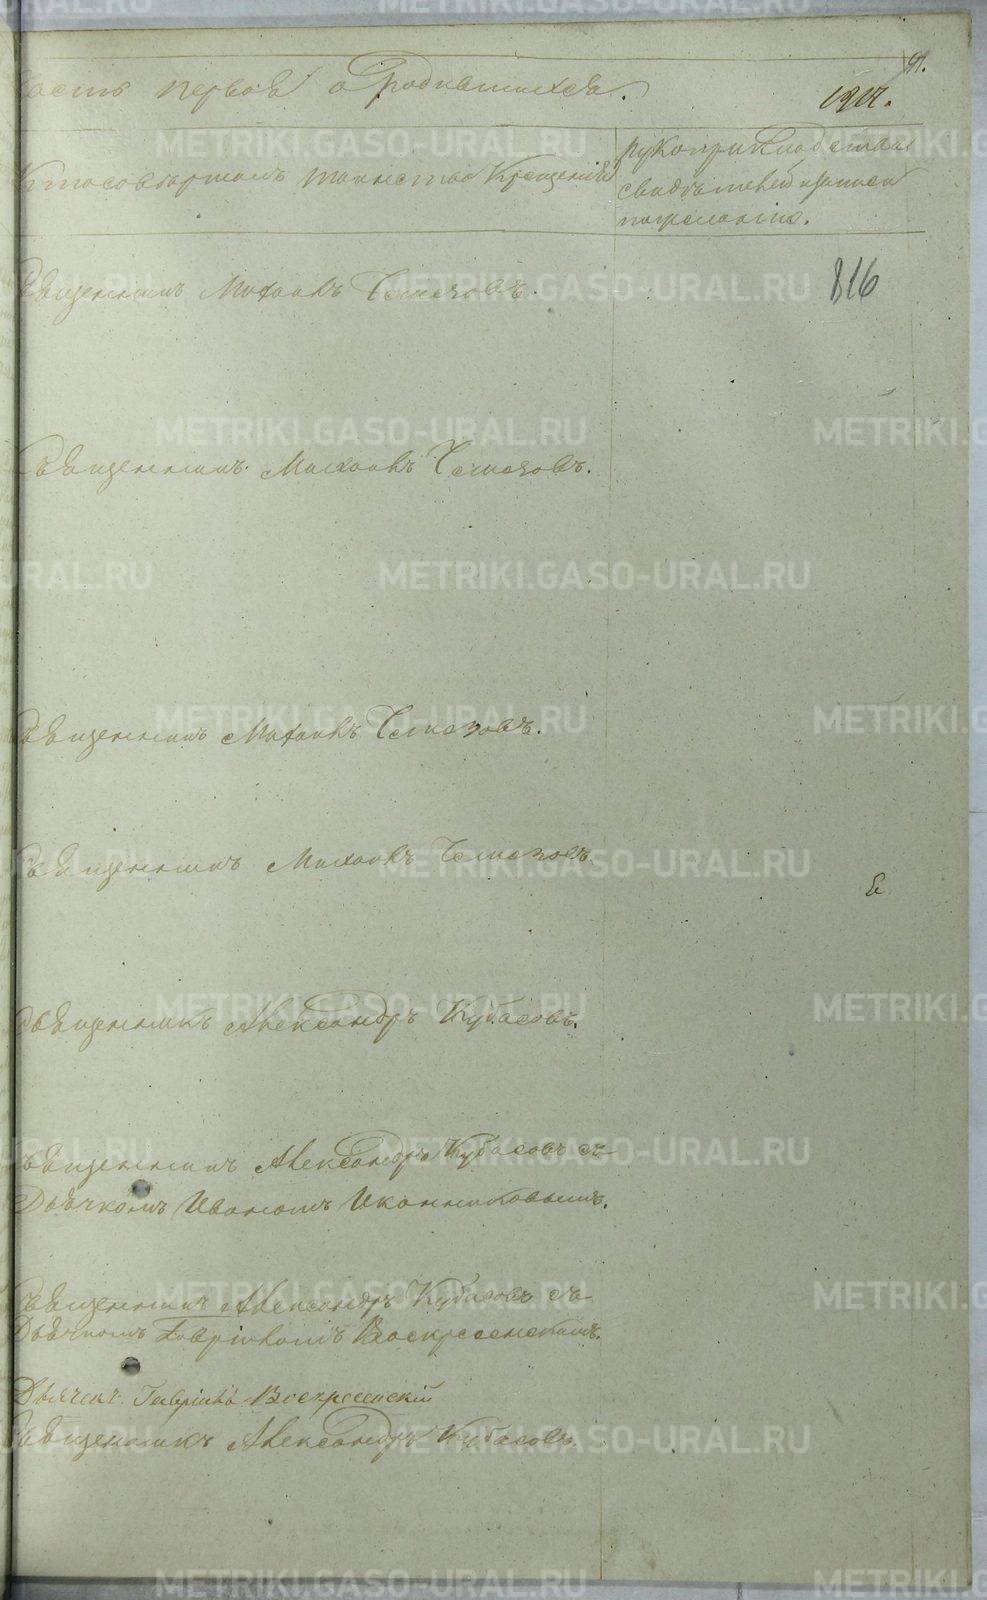 91.
часть первая о Родившихся.
1917.
Кто совершалъ таинство Крещенія
рукоприкладство
свидѣтелей записи
по желанію.
816
Священникъ Михаилъ
Священникъ Михаилъ
Священникъ Михаилъ
Священникъ Михаилъ
Священникъ Александръ Кубасовъ.
Священникъ Александръ Кубасовъ съ
Дьячкомъ Иваномъ Иконниковымъ.
Священникъ Александръ Кубасовъ съ
Дьячкомъ Гавріиломъ Воскресенскимъ.
Дьячекъ Гавріилъ Воскресенскій
Священникъ Александръ Кубасовъ
METRIKI.GASO-URAL.RU